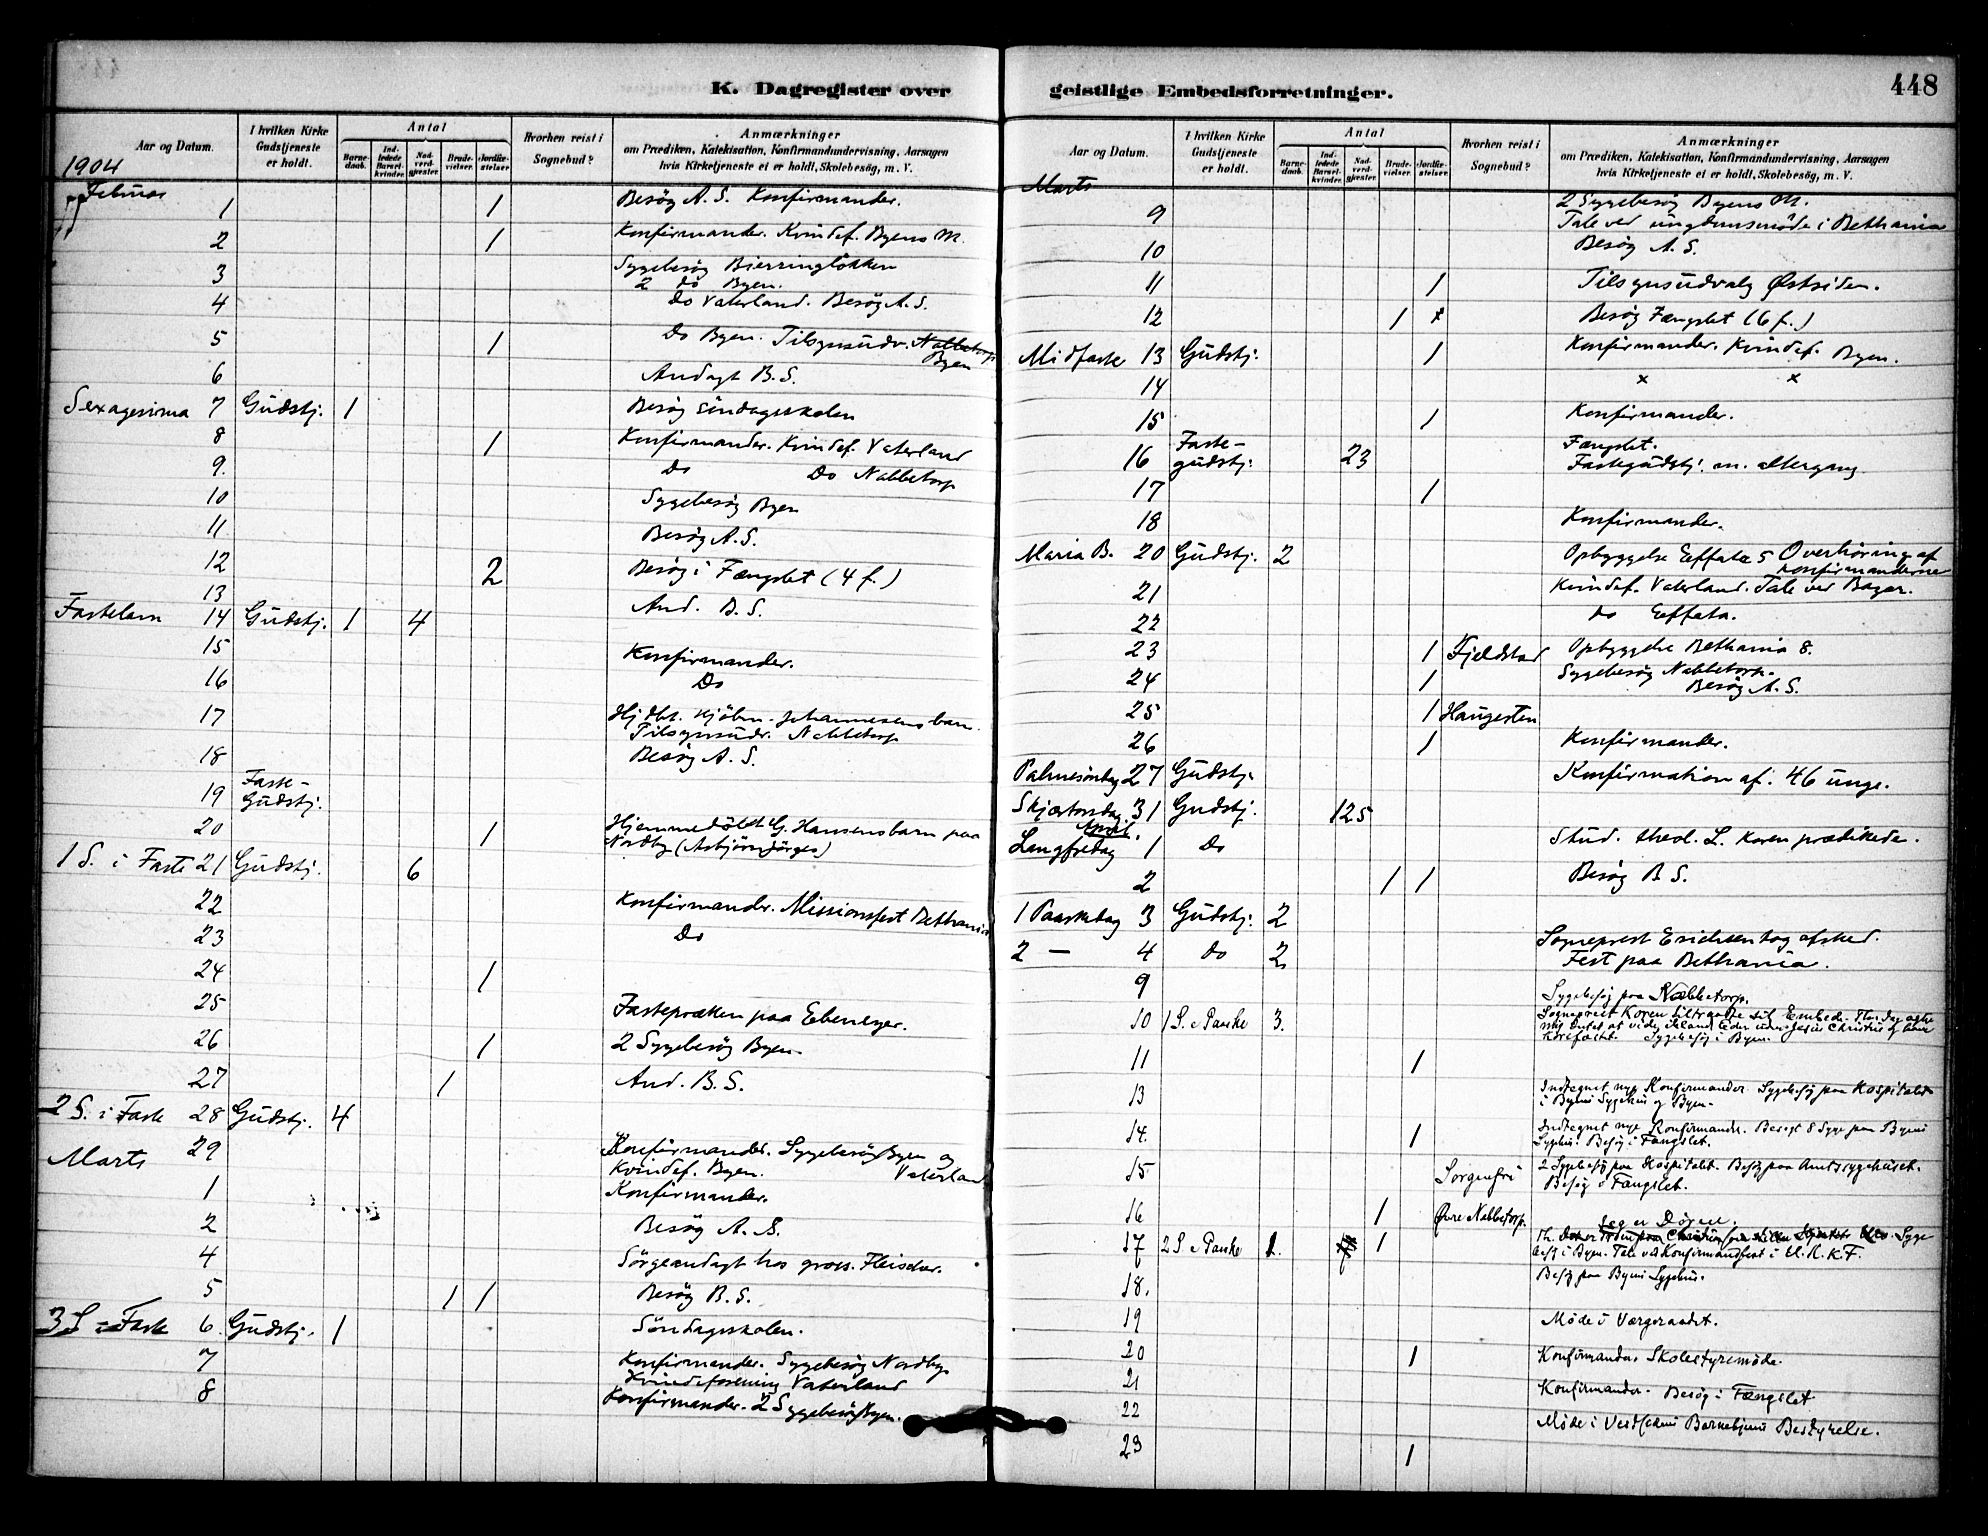 448
K. Dagregister over geistlige Embedsforretninger.
Aar og Datum.
I hvilken Kirke Gudstjeneste er holdt.
Antal
Barnedaab.
Indledede Barselkvinder.
Nadverdgjester.
Brudevielser.
Jordfæstelser.
Hvorhen reist i Sognebud?
Anmærkninger
om Prædiken, Katekisation, Konfirmandundervisning, Aarsagen
hvis Kirketjeneste ei er holdt, Skolebesög, m. V.
1904
Februar
1 1 Besög A. S. Konfirmander.
2 1 Konfirmander. Kvindef. Byens M.
3 Sygebesög Bjerringløkken
2 do Byen.
4 Do Vaterland. Besög A. S.
5 1 Do Byen. Tilsynsudv. Nabbetorp
Byen
6 Andagt B. S.
Sexagesima 7 Gudstj. 1 Besög Søndagsskolen
8 1 Konfirmander. Kvindef. Vaterland
9. Do Do Nabbetorp
10 Sygebesög Byen
11 Besög A. S.
12 2 Besög i Fængslet (4 f.)
13 And. B. S.
Fastelavn 14 Gudstj. 1 4
15 Konfirmander.
16 Do
17 Hj dbt. Kjøbm. Johannesens barn.
Tilsynsudv. Nabbetorp
18 Besög A. S.
19 Faste-
Gudstj.
20 1 Hjemmedöbt G. Hansens barn paa
Nordby
1 S. i Faste 21 Gudstj. 6
22 Konfirmander. Missionsfest Bethania
23 Do
24 1
25 Fastepræken paa Ebenezer.
26 1 2 Sygebesög Byen.
27 1 And. B. S.
2 S. i Faste 28 Gudstj. 4
29 Konfirmander. Sygebesög Byen og
Kvindef. Byen. Vaterland
Marts
1 Konfirmander.
2 Besög A. S.
4 Sörgeandagt hos gross.
5 1 1 Besög B. S.
3 S i Faste 6. Gudstj. 1 Söndagsskolen.
7 Konfirmander. Sygebesög Nordby
Kvindeforening Vaterland
8 Konfirmander. 2 Sygebesög Byen.
Aar og Datum.
I hvilken Kirke Gudstjeneste er holdt.
Antal
Barnedaab.
Indledede Barselkvinder.
Nadverdgjester.
Brudevielser.
Jordfæstelser.
Hvorhen reist i Sognebud?
Anmærkninger
om Prædiken, Katekisation, Konfirmandundervisning, Aarsagen
hvis Kirketjeneste ei er holdt, Skolebesög, m. V.
Marts
9 2 Sygebesög Byens M.
Tale ved ungdomsmöde i Bethania
10 Besög A. S.
11 1 Tilsynsudvalg Østsiden.
12 1 x Besög Fængslet (6 f.)
Midfaste 13 Gudstj. 1 Konfirmander. Kvindef. Byen.
14 x x
15 1 Konfirmander.
16 Faste-
gudstj. 23 Fængslet.
Fastegudstj. m. altergang.
17 1
18 Konfirmander.
Maria B. 20 Gudstj. 2 Opbyggelse Effata 5 Overhöring af
konfirmanderne
21 Kvindef. Vaterland. Tale ved Bazar.
22 do Effata.
23 1 Fjeldstad Opbyggelse Bethania 8.
24 1 Sygebesög Nabbetorp.
Besög A. S.
25 1 Haugesten
26 1 Konfirmander.
Palmesöndag 27 Gudstj. Konfirmation af 46 unge.
Skjærtorsdag 31 Gudstj. 125
April.
Langfredag 1 Do Stud. theol. L. Koren prædikede.
2 1 1 Besög B. S.
1 Paaskedag 3 Gudstj. 2
2 — 4 do 2 Sogneprest Erichsen tog afsked.
Fest paa Bethania.
9 Sygebesög paa Nabbetorp.
10 1 S. e Paaske 3. Sogneprest Koren tiltraadte sit Embede.
Sygebesög i Byen.
11 1
13 Indtegnet nye Konfirmander. Sygebesög paa Hospitalet
i Byens Sygehus og Byen.
14. 1 Indtegnet nye Konfirmander. Besøgt 8 Syge paa Byens
Sygehus. Besög i Fængslet.
15 Sorgenfri 2 Sygebesög paa Hospitalet. Besög paa Amtssygehuset.
Besög i Fængslet.
16 1 Øvre Nabbetorp.
Jeg er Døren.
17 2 S. e Paaske 1. 1 Syge
besög i Byen. Tale ved Konfirmandfest i U. K. F.
18. Besög paa Byens Sygehus.
19 Møde i Værgeraadet.
20 1 Konfirmander. Skolestyremøde.
21 Konfirmander. Besög i Fængslet
22 Møde i Barnehjems Bestyrelse.
23 1